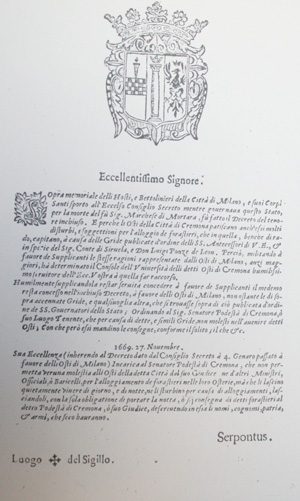 Eccellentissimo Signore.
Sopra memoriale delli Hosti, e Bettolinieri della Città di Milano, e suoi Corpi
Santi sporto all'Eccelso Consiglio Secreto mentre governaua questo Stato,
per la morte del fù Sig. Marchese di Mortara, fù fatto il Decreto del teno-
re incluso. E perche li Osti della Città di Cremona patiscono anch'essi molti
disturbi, e suggettioni per l'alloggio de forastieri, che in quella, benche di ra-
do, capitano, à causa delle Gride publicate d'ordine delli SS. Antecessori di V. E., &
in specie del Sig. Conte di Siruela, e Don Luigi Ponze di Leon, Perciò, militando à
fauore de Supplicanti le stesse ragioni rappresentate dalli Osti di Milano, anzi mag-
giori, hà determinato il Console dell'Vniuersità delli detti Osti di Cremona humilissi-
mo seruitore dell'Ecc. Vostra à quella far ricorso,
Humilmente supplicandola restar seruita concedere à fauore de Supplicanti il medemo
Decreto, à fauore delli Osti di Milano, non ostante le di so-
pra accennate Gride, e qualsiuoglia altra, che si trouasse sopra di ciò publicata d'ordi-
ne de SS. Gouernatori dello Stato; Ordinando al Sig. Senatore Podestà di Cremona, ò
suo Luogo Tenente, che per causa di dette, ò simili Gride, non molesti nell'auenire detti
Osti; Con che però essi mandino le consegne, conforme il solito, il che &c.
1669. 27. Nouembre.
Sua Eccellenza (inherendo al Decreto dato dal Consiglio Secreto à 4. Genaro passato à
fauore delli Osti di Milano) Incarica al Senatore Podestà di Cremona, che non per-
metta veruna molestia alli Osti della detta Città dal suo Giudice, ne d'altri Ministri,
Officiali, ò Baricelli, per l'alloggiamento de forastieri nelle loro Osterie, mà che li lascino
quietamente viuere di giorno, e di notte, ne li sturbino per causa di alloggiamenti, lasc-
iandoli, con la sola obligatione di portare la notta, ò sij consegna di detti forastieri al
detto Podestà di Cremona, ò suo Giudice, deferentendo in essa li nomi, cognomi, patria,
& armi, che seco hauranno.
Serpontus.
Luogo ✠ del Sigillo.